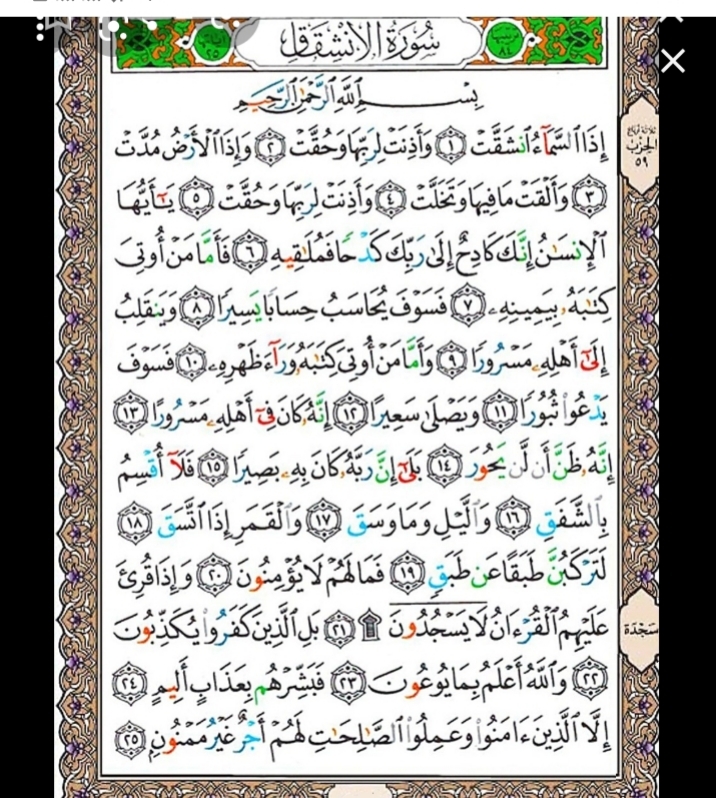 سُورَةُ الِانْشِقَاقِ
بِسْمِ اللَّهِ الرَّحْمَٰنِ الرَّحِيمِ
إِذَا ٱلسَّمَآءُ ٱنشَقَّتْ ١ وَأَذِنَتْ لِرَبِّهَا وَحُقَّتْ ٢ وَإِذَا ٱلْأَرْضُ مُدَّتْ
٣ وَأَلْقَتْ مَا فِيهَا وَتَخَلَّتْ ٤ وَأَذِنَتْ لِرَبِّهَا وَحُقَّتْ ٥ يَٰٓأَيُّهَا
ٱلْإِنسَٰنُ إِنَّكَ كَادِحٌ إِلَىٰ رَبِّكَ كَدْحًا فَمُلَٰقِيهِ ٦ فَأَمَّا مَنْ أُوتِىَ
كِتَٰبَهُۥ بِيَمِينِهِۦ ٧ فَسَوْفَ يُحَاسَبُ حِسَابًا يَسِيرًا ٨ وَيَنقَلِبُ
إِلَىٰٓ أَهْلِهِۦ مَسْرُورًا ٩ وَأَمَّا مَنْ أُوتِىَ كِتَٰبَهُۥ وَرَآءَ ظَهْرِهِۦ ١٠ فَسَوْفَ
يَدْعُوا۟ ثُبُورًا ١١ وَيَصْلَىٰ سَعِيرًا ١٢ إِنَّهُۥ كَانَ فِىٓ أَهْلِهِۦ مَسْرُورًا ١٣
إِنَّهُۥ ظَنَّ أَن لَّن يَحُورَ ١٤ بَلَىٰٓ إِنَّ رَبَّهُۥ كَانَ بِهِۦ بَصِيرًا ١٥ فَلَآ أُقْسِمُ
بِٱلشَّفَقِ ١٦ وَٱلَّيْلِ وَمَا وَسَقَ ١٧ وَٱلْقَمَرِ إِذَا ٱتَّسَقَ ١٨
لَتَرْكَبُنَّ طَبَقًا عَن طَبَقٍ ١٩ فَمَا لَهُمْ لَا يُؤْمِنُونَ ٢٠ وَإِذَا قُرِئَ
عَلَيْهِمُ ٱلْقُرْءَانُ لَا يَسْجُدُونَ ۩ ٢١ بَلِ ٱلَّذِينَ كَفَرُوا۟ يُكَذِّبُونَ
٢٢ وَٱللَّهُ أَعْلَمُ بِمَا يُوعُونَ ٢٣ فَبَشِّرْهُم بِعَذَابٍ أَلِيمٍ ٢٤
إِلَّا ٱلَّذِينَ ءَامَنُوا۟ وَعَمِلُوا۟ ٱلصَّٰلِحَٰتِ لَهُمْ أَجْرٌ غَيْرُ مَمْنُونٍ ٢٥
ثلاثة أرباع
الحزب
٥٩
سَجْدَة